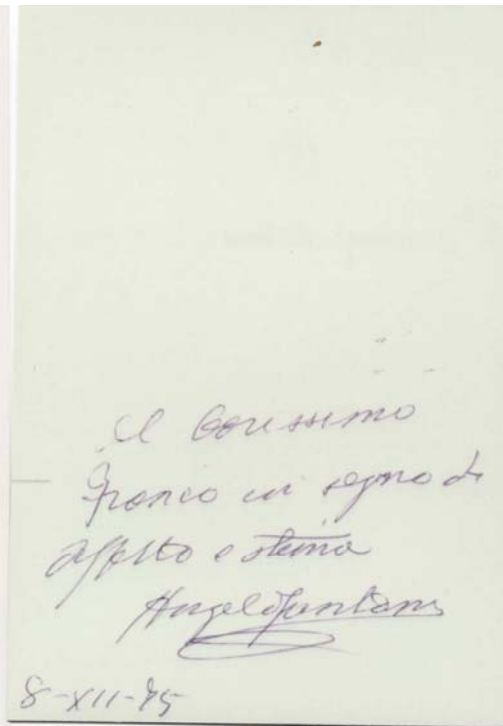 Al Carissimo
Franco in segno di
affetto e stima
Angelo Fontana
8-XII-95